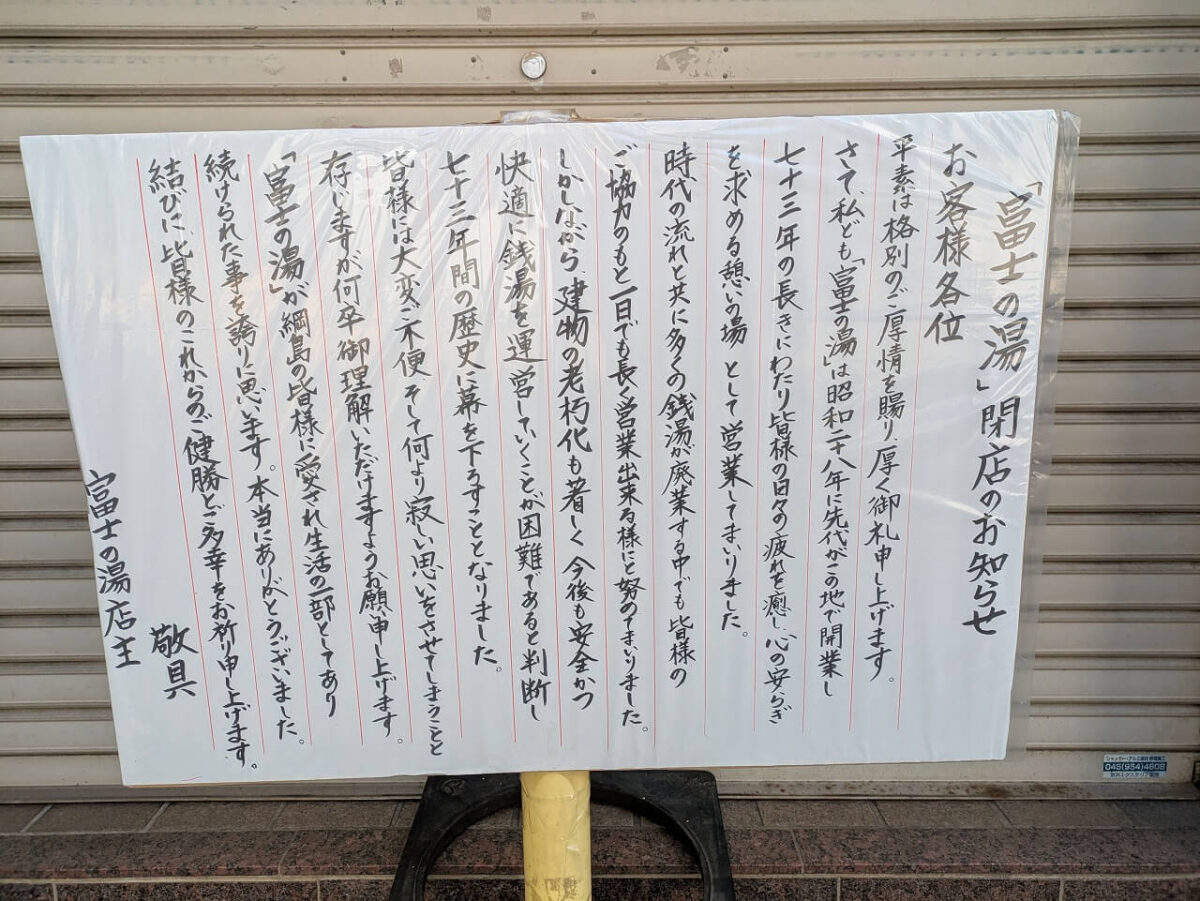 「富士の湯」閉店のお知らせ
お客様各位
平素は格別のご厚情を賜り、厚く御礼申し上げます。
さて、私ども「富士の湯」は昭和二十八年に先代がこの地で開業し
七十三年の長きにわたり皆様の日々の疲れを癒し心の安らぎ
を求める憩いの場として営業してまいりました。
時代の流れと共に多くの銭湯が廃業する中でも皆様の
ご協力のもと一日でも長く営業出来る様にと努めてまいりました。
しかしながら、建物の老朽化も著しく今後も安全かつ
快適に銭湯を運営していくことが困難であると判断し
七十三年間の歴史に幕を下ろすこととなりました。
皆様には大変ご不便そして何より寂しい思いをさせてしまうことと
存じますが何卒御理解いただけますようお願い申し上げます。
「富士の湯」が綱島の皆様に愛され生活の一部としてあり
続けられた事を誇りに思います。本当にありがとうございました。
結びに、皆様のこれからのご健勝とご多幸をお祈り申し上げます。
敬具
富士の湯店主
045(954)4808